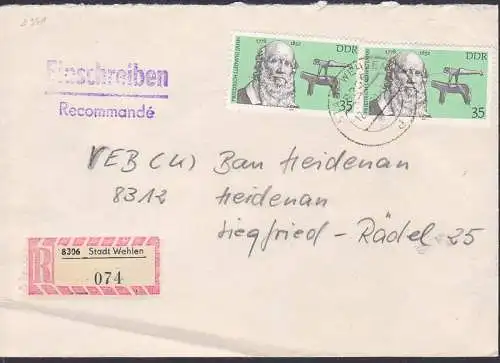 Einschreiben
Recommandé
1778 1852
DDR
FRIEDRICH LUDWIG JAHN
35
1778 1852
DDR
35
VEB (K) Bau Heidenau
8312 Heidenau
Siegfried-Rädel 25
R
8306 Stadt Wehlen
074